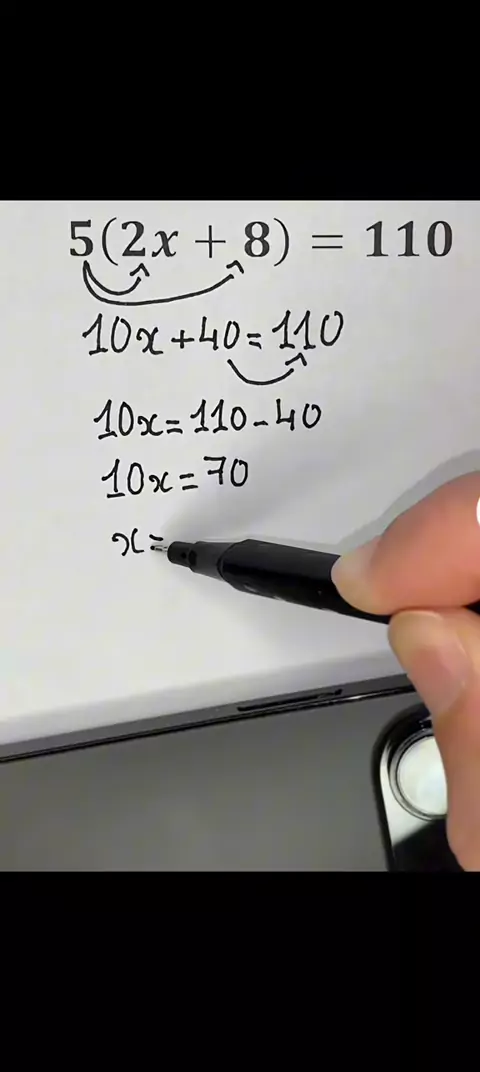 5(2x + 8) = 110
10x + 40 = 110
10x = 110 - 40
10x = 70
x =